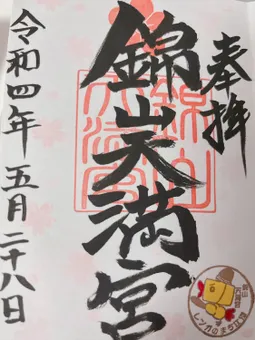 奉拝
錦山天満宮
令和四年五月二十八日
レンガのまち江別